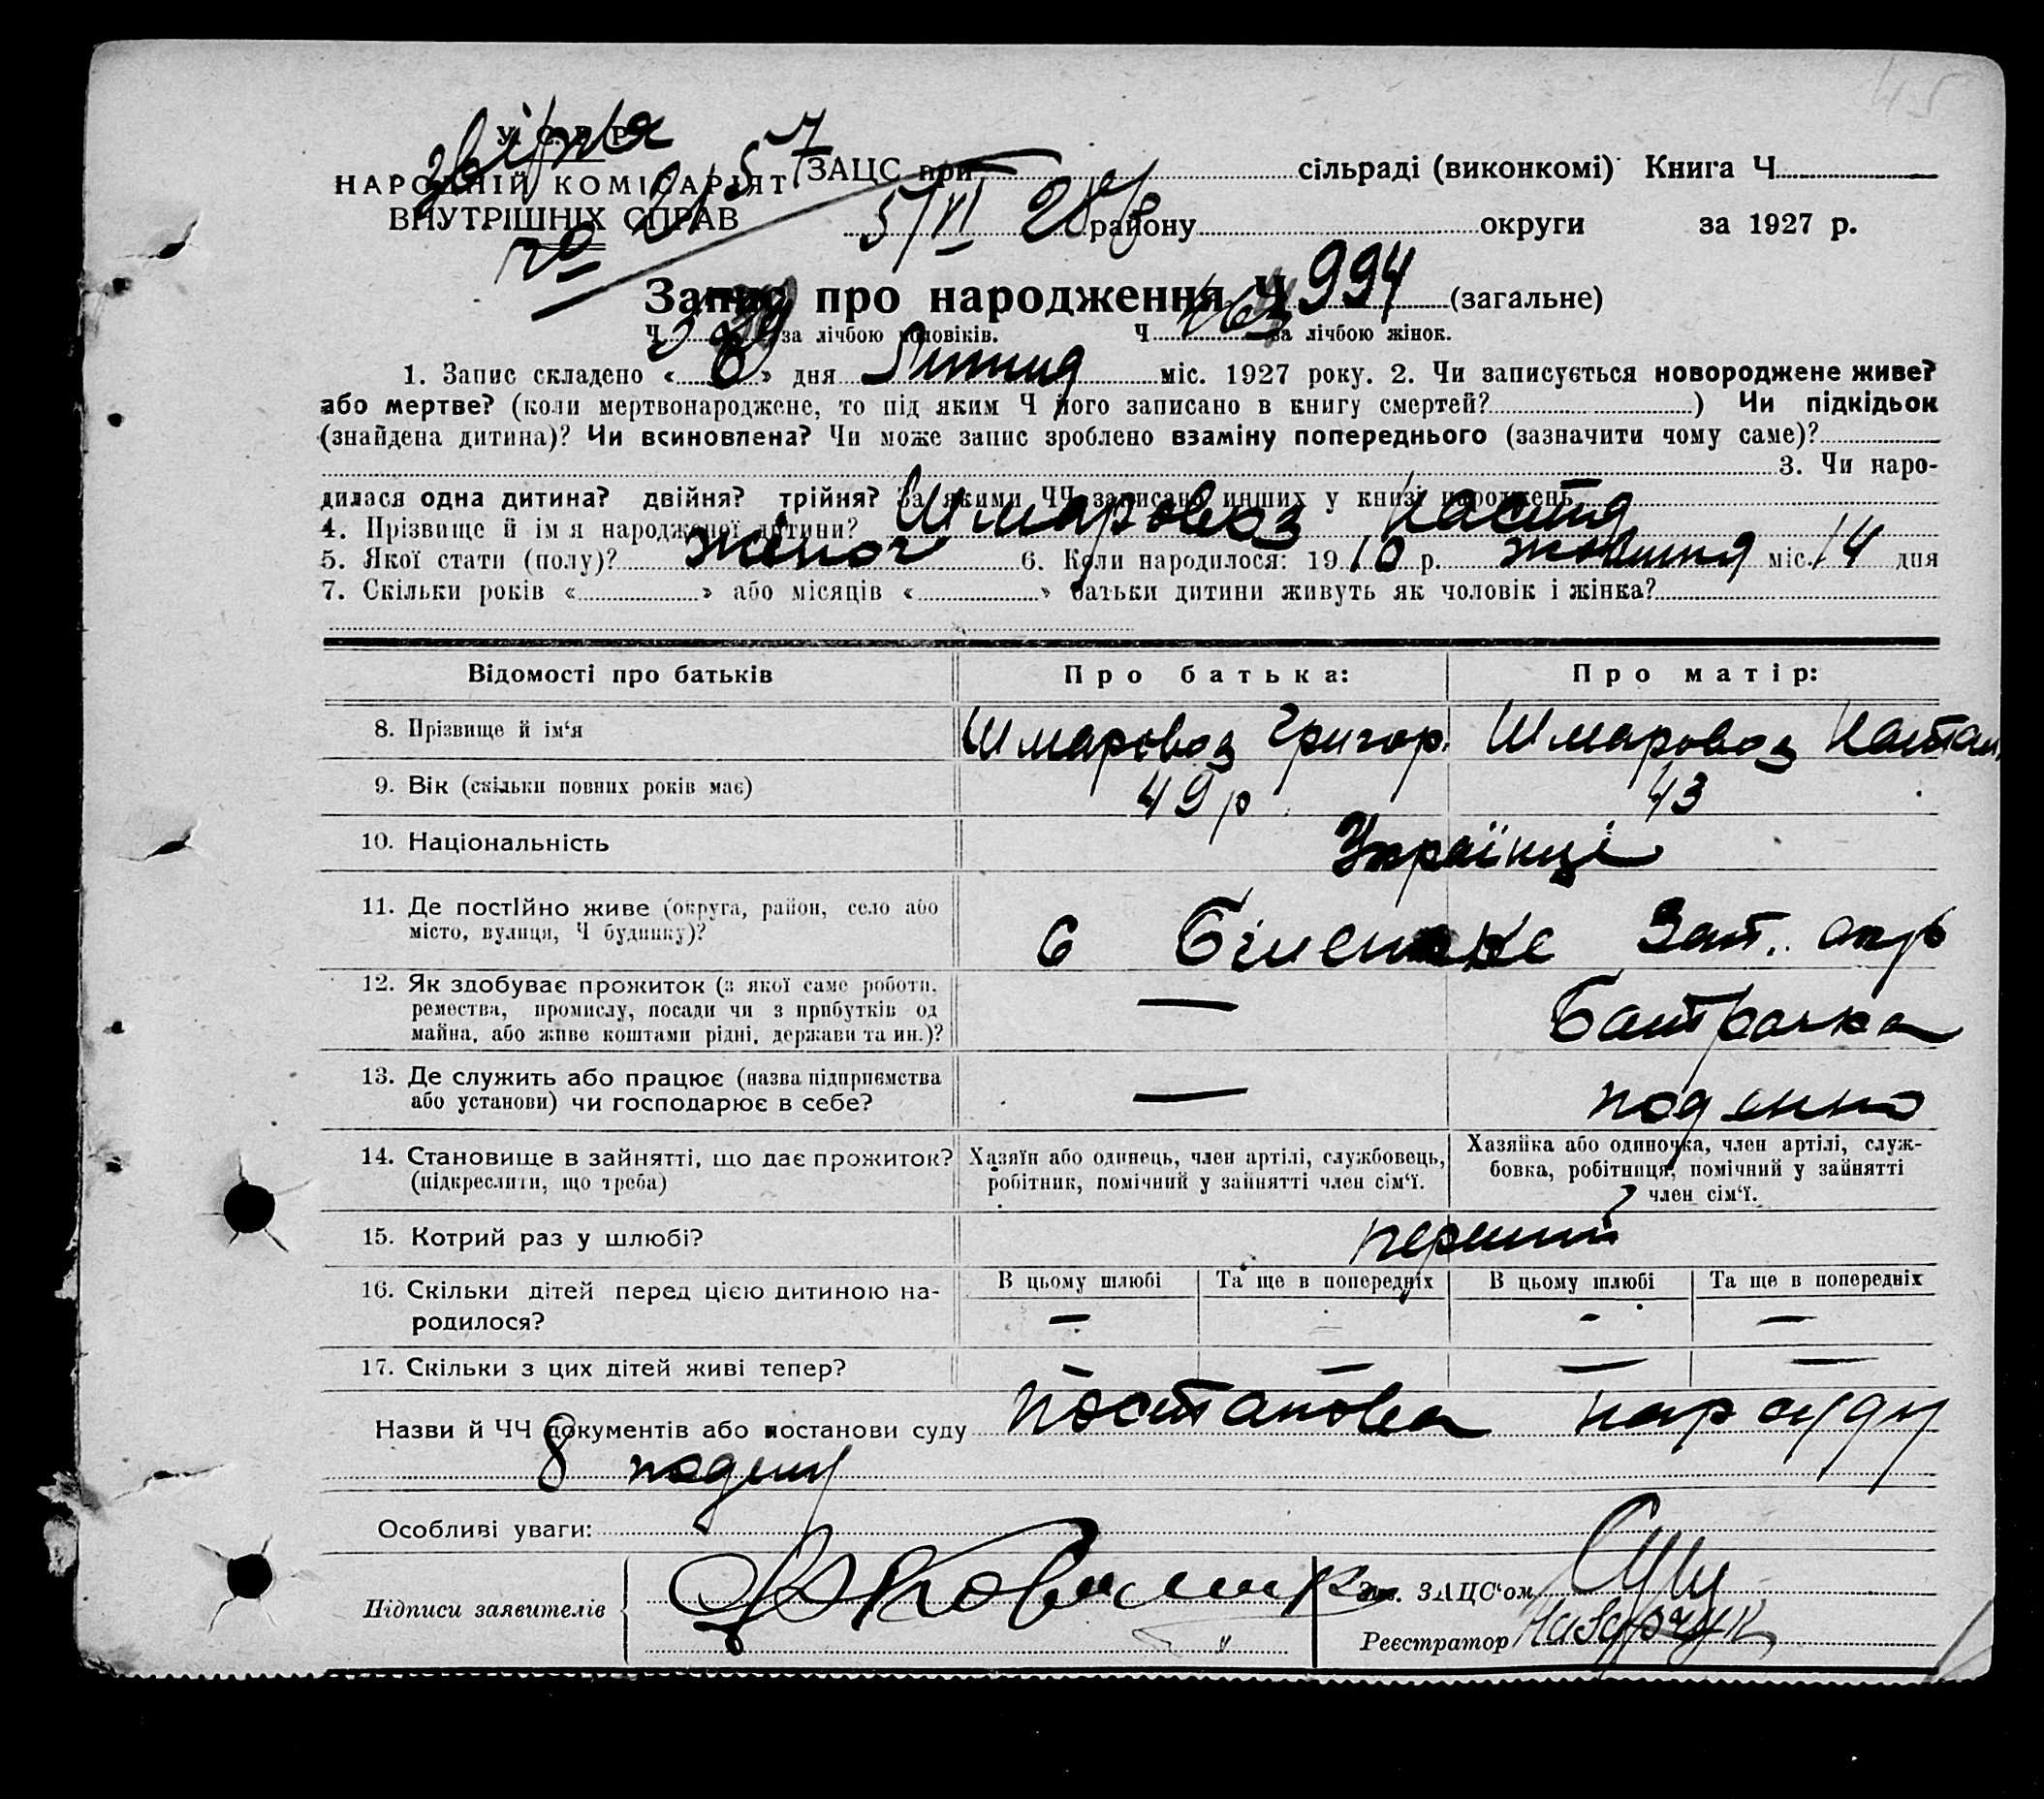 45
У. С. Р. Р.
НАРОДНІЙ КОМІСАРІЯТ
ВНУТРІШНІХ СПРАВ
ЗАЦС при сільраді (виконкомі) Книга Ч.
5/VI 28 району округи за 1927 р.
Запис про народження Ч 994 (загальне)
Ч. за лічбою чоловіків. Ч за лічбою жінок.
1. Запис складено «6» дня Липня міс. 1927 року. 2. Чи записується новороджене живе?
або мертве? (коли мертвонароджене, то під яким Ч його записано в книгу смертей? ) Чи підкідьок
(знайдена дитина)? Чи всиновлена? Чи може запис зроблено взаміну попереднього (зазначити чому саме)?
3. Чи наро-
дилася одна дитина? двійня? трійня? За якими ЧЧ записано инших у книзі народжень
4. Прізвище й ім я народженої дитини? Шмаровоз Настя
5. Якої стати (полу)? жіноч 6. Коли народилося: 1910 р. жовтня міс. 14 дня
7. Скільки років « » або місяців « » батьки дитини живуть як чоловік і жінка?
Відомості про батьків Про батька: Про матір:
8. Прізвище й ім'я Шмаровоз Григор. Шмаровоз Настан
9. Вік (скільки повних років має) 49 р 43
10. Національність Українці
11. Де постійно живе (округа, район, село або
місто, вулиця, Ч будинку)?
с Біленьке Зап. окр
12. Як здобуває прожиток (з якої саме роботи,
ремества, промислу, посади чи з прибутків од
майна, або живе коштами рідні, держави та ин.)?
— Батрачка
13. Де служить або працює (назва підприємства
або установи) чи господарює в себе?
— поденно
14. Становище в зайнятті, що дає прожиток?
(підкреслити, що треба)
Хазяїн або одинець, член артілі, службовець,
робітник, помічний у зайнятті член сім'ї.
Хазяйка або одиночка, член артілі, служ-
бовка, робітниця, помічний у зайнятті
член сім'ї.
15. Котрий раз у шлюбі? перший
16. Скільки дітей перед цією дитиною на-
родилося?
В цьому шлюбі Та ще в попередніх В цьому шлюбі Та ще в попередніх
— - - —
17. Скільки з цих дітей живі тепер? — — — —
Назви й ЧЧ документів або постанови суду Постанова нарсуду
8
Особливі уваги:
Підписи заявителів
Зав. ЗАЦС'ом
Реєстратор